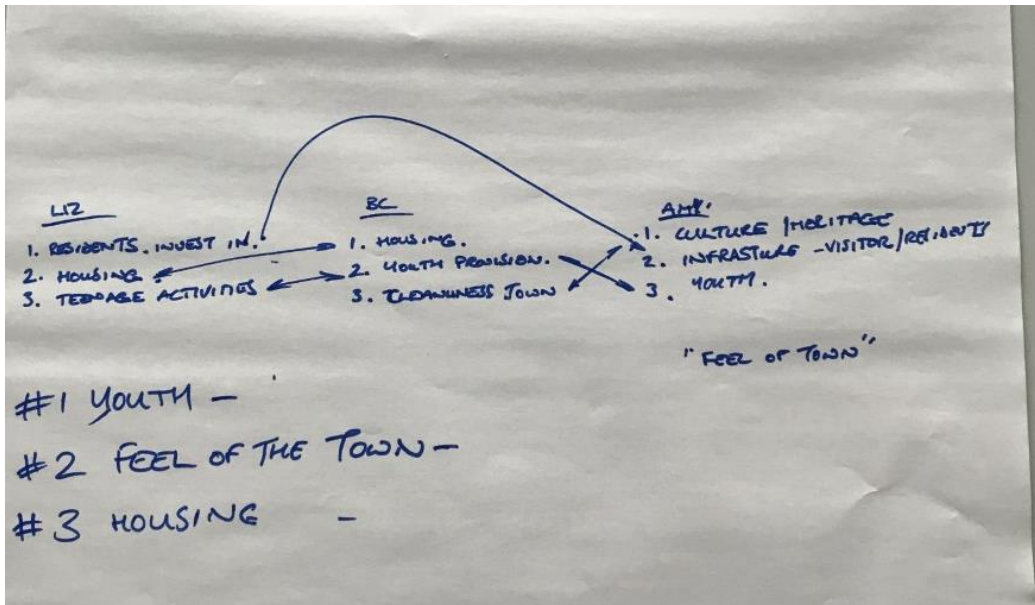 LIZ
1. RESIDENTS. INVEST IN.
2. HOUSING.
3. TEENAGE ACTIVITIES
BC
1. HOUSING.
2. YOUTH PROVISION.
3. CLEANLINESS TOWN
AMY.
1. CULTURE / HERITAGE
2. INFRASTURE - VISITOR / RESIDENTS
3. YOUTH.
"FEEL OF TOWN"
#1 YOUTH -
#2 FEEL OF THE TOWN -
#3 HOUSING -